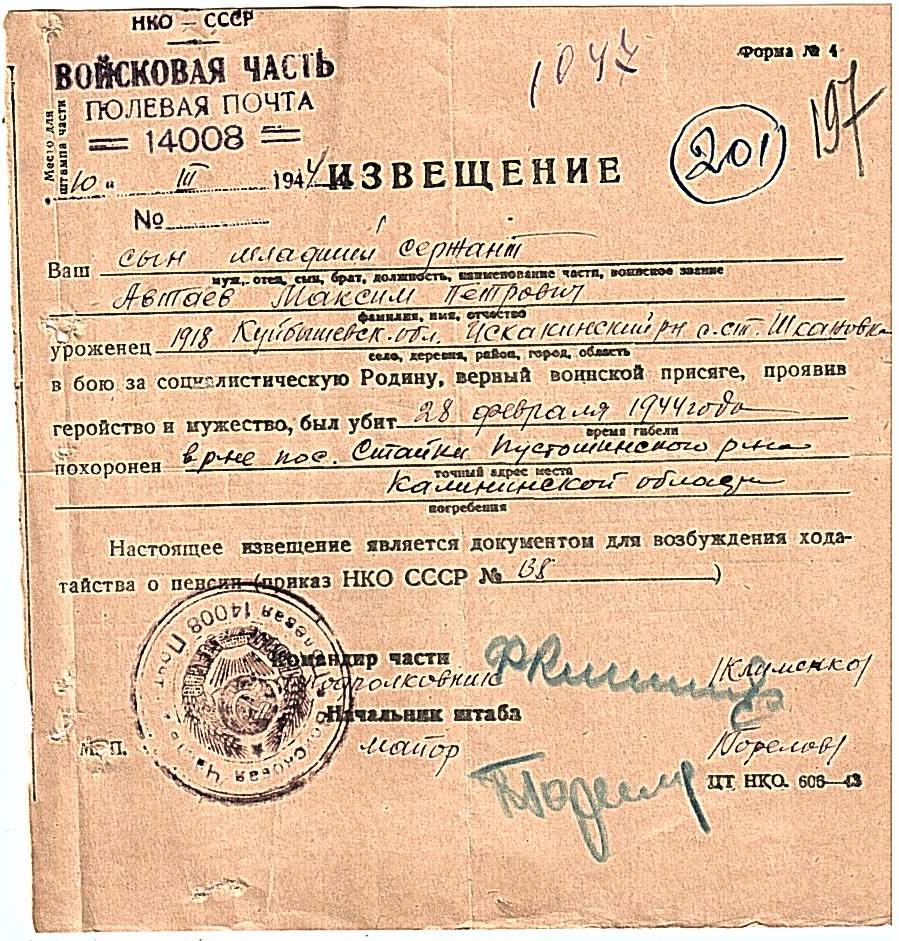 НКО — СССР
ВОЙСКОВАЯ ЧАСТЬ
ПОЛЕВАЯ ПОЧТА
14008
Место для
штампа части
„10" III 1944
№
1047
Форма № 4
197
201
ИЗВЕЩЕНИЕ
Ваш сын младший сержант
муж, отец, сын, брат, должность, наименование части, воинское звание
Автаев Максим Петрович
фамилия, имя, отчество
уроженец 1918 Куйбышевск. обл. Искакинский рн с. ст.
село, деревня, район, город, область
в бою за социалистическую Родину, верный воинской присяге, проявив
геройство и мужество, был убит 28 февраля 1944 года
время гибели
похоронен в р-не пос. Стайки Пустошинского р-на
точный адрес места
Калининской области
погребения
Настоящее извещение является документом для возбуждения хода-
тайства о пенсии (приказ НКО СССР № 138)
Командир части
Подполковник /Клименко/
Начальник штаба
М. П. майор /Горелов/
ЦТ НКО. 606—43
Войсковая Часть Полевая Почта 14008